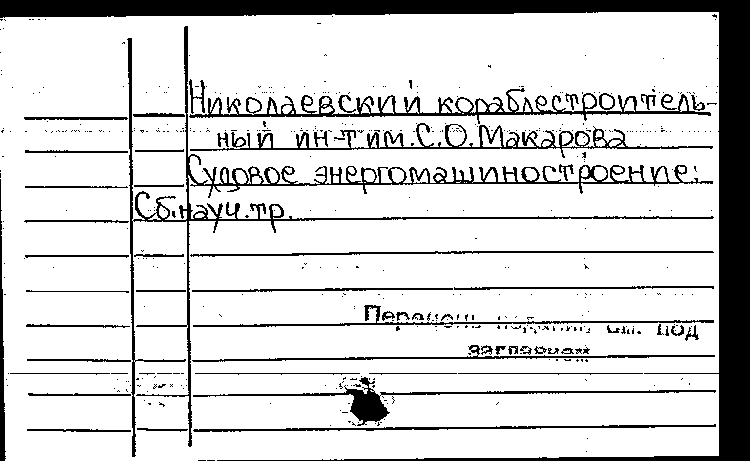 Николаевский кораблестроитель-
ный ин-т им. С.О. Макарова
Судовое энергомашиностроение:
Сб. науч. тр.
Перечень изданий см. под
заглавием